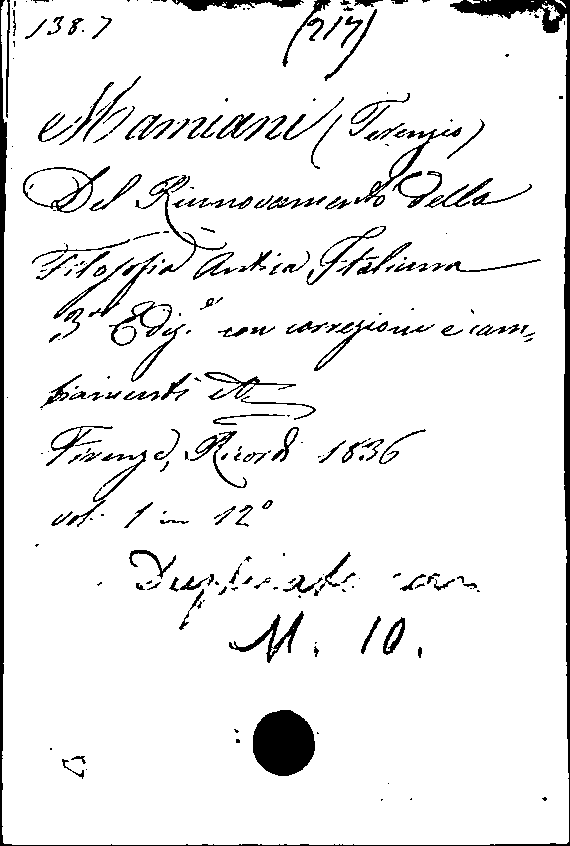 138.7 (217)
Mamiani (Terenzio)
Del Rinnovamento della
Filosofia Antica Italiana
3ª Ediz.e con correzioni e cam,
biamenti etc
Firenze, Ricordi 1836
vol. 1 in 12º
Duplicato con
M. 10.